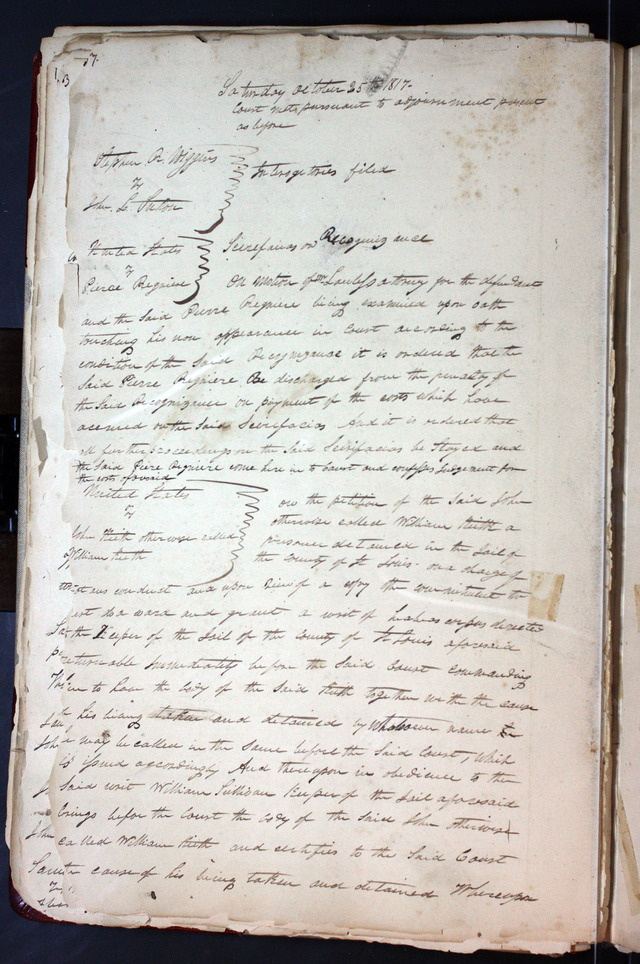 57.
Saturday October 25th 1817.
Court met pursuant to adjournment present
as before
Stephen R. Wiggins
vs
John L. Sutton
Interogatories filed
United States
vs
Pierre Regniere
Scirefacias on Recognizance
On motion of Mr attorney for the defendant
and the Said Pierre Regniere being examined upon oath
touching his non appearance in Court according to the
condition of the Said Recognizance it is ordered that the
Said Pierre Regniere Be discharged from the penalty of
the Said Recognizance on payment of the costs which have
accrued on the Said Scirefacias And it is ordered that
all further proceedings on the Said Scirefacias be Stayed and
the Said Piere Regniere come here in to Court and confess judgement for
the costs aforesaid
United States
vs
John Keith otherwise called
William Keith
on the petition of the Said John
otherwise called William Keith a
prisoner detained in the Jail of
the County of St Louis on a charge of
conduct and upon view of a copy the commitment the
Court do award and grant a writ of habeas corpus directed
to the Keeper of the Jail of the County of St Louis aforesaid
returnable immediately before the Said Court commanding
him to have the body of the Said Keith together with the cause
of his being taken and detained by whatsoever name he
may be called in the same before the Said Court, which
is issued accordingly And thereupon in obedience to the
Said writ William Sullivan Keeper of the Jail aforesaid
brings before the Court the body of the Said John otherwise
called William Keith and certifies to the Said Court
cause of his being taken and detained Whereupon